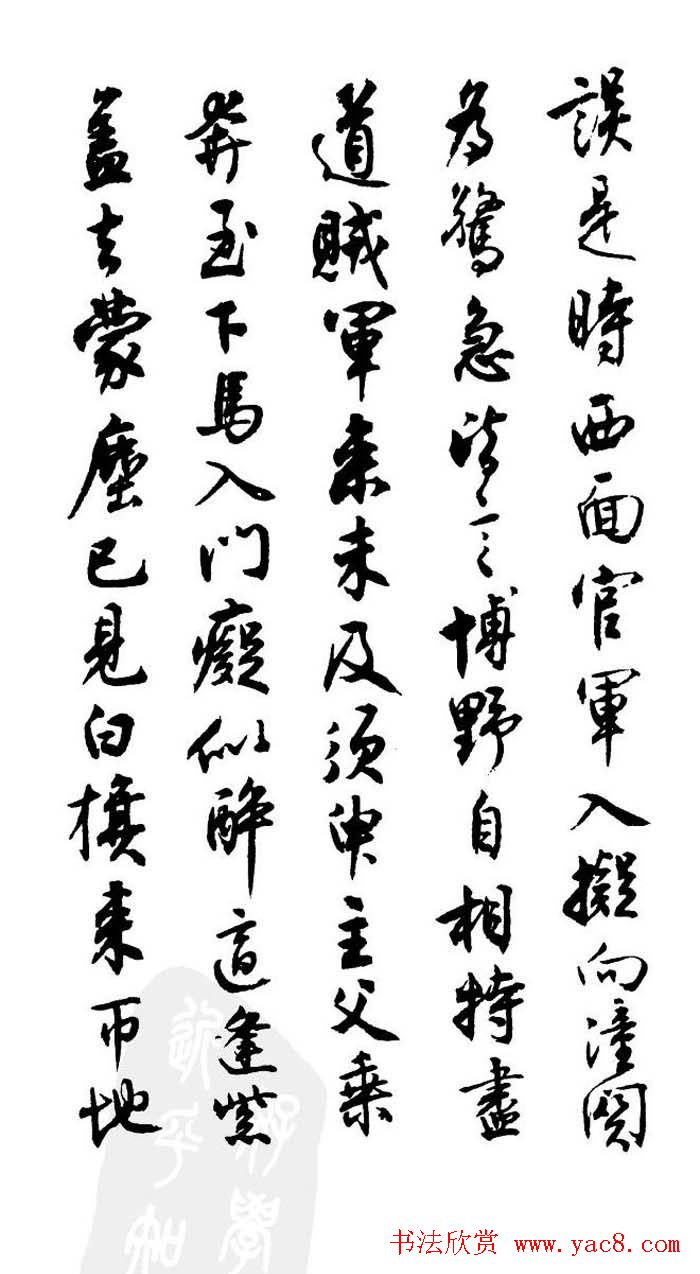 誤是時西面官軍入擬向潼關
為驚急皆言博野自相持盡
道賊軍來未及須臾主父乘
奔至下馬入門癡似醉適逢紫
蓋去蒙塵已見白旗來匝地
书法欣赏 www.yac8.com